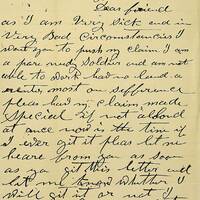 Dear friend
as I am Very Sick and in
Very Bad Circumstancies I
want you to push my claim. I am
a pore nedy Soldier and am not
able to work had no hand a
renter, most on sufference
pleas had my claim made
Special if not alowd
at once now is the time if
I ever git it pleas let me
heare from you as soon
as you git this letter and
let me know whether
will git it or not I